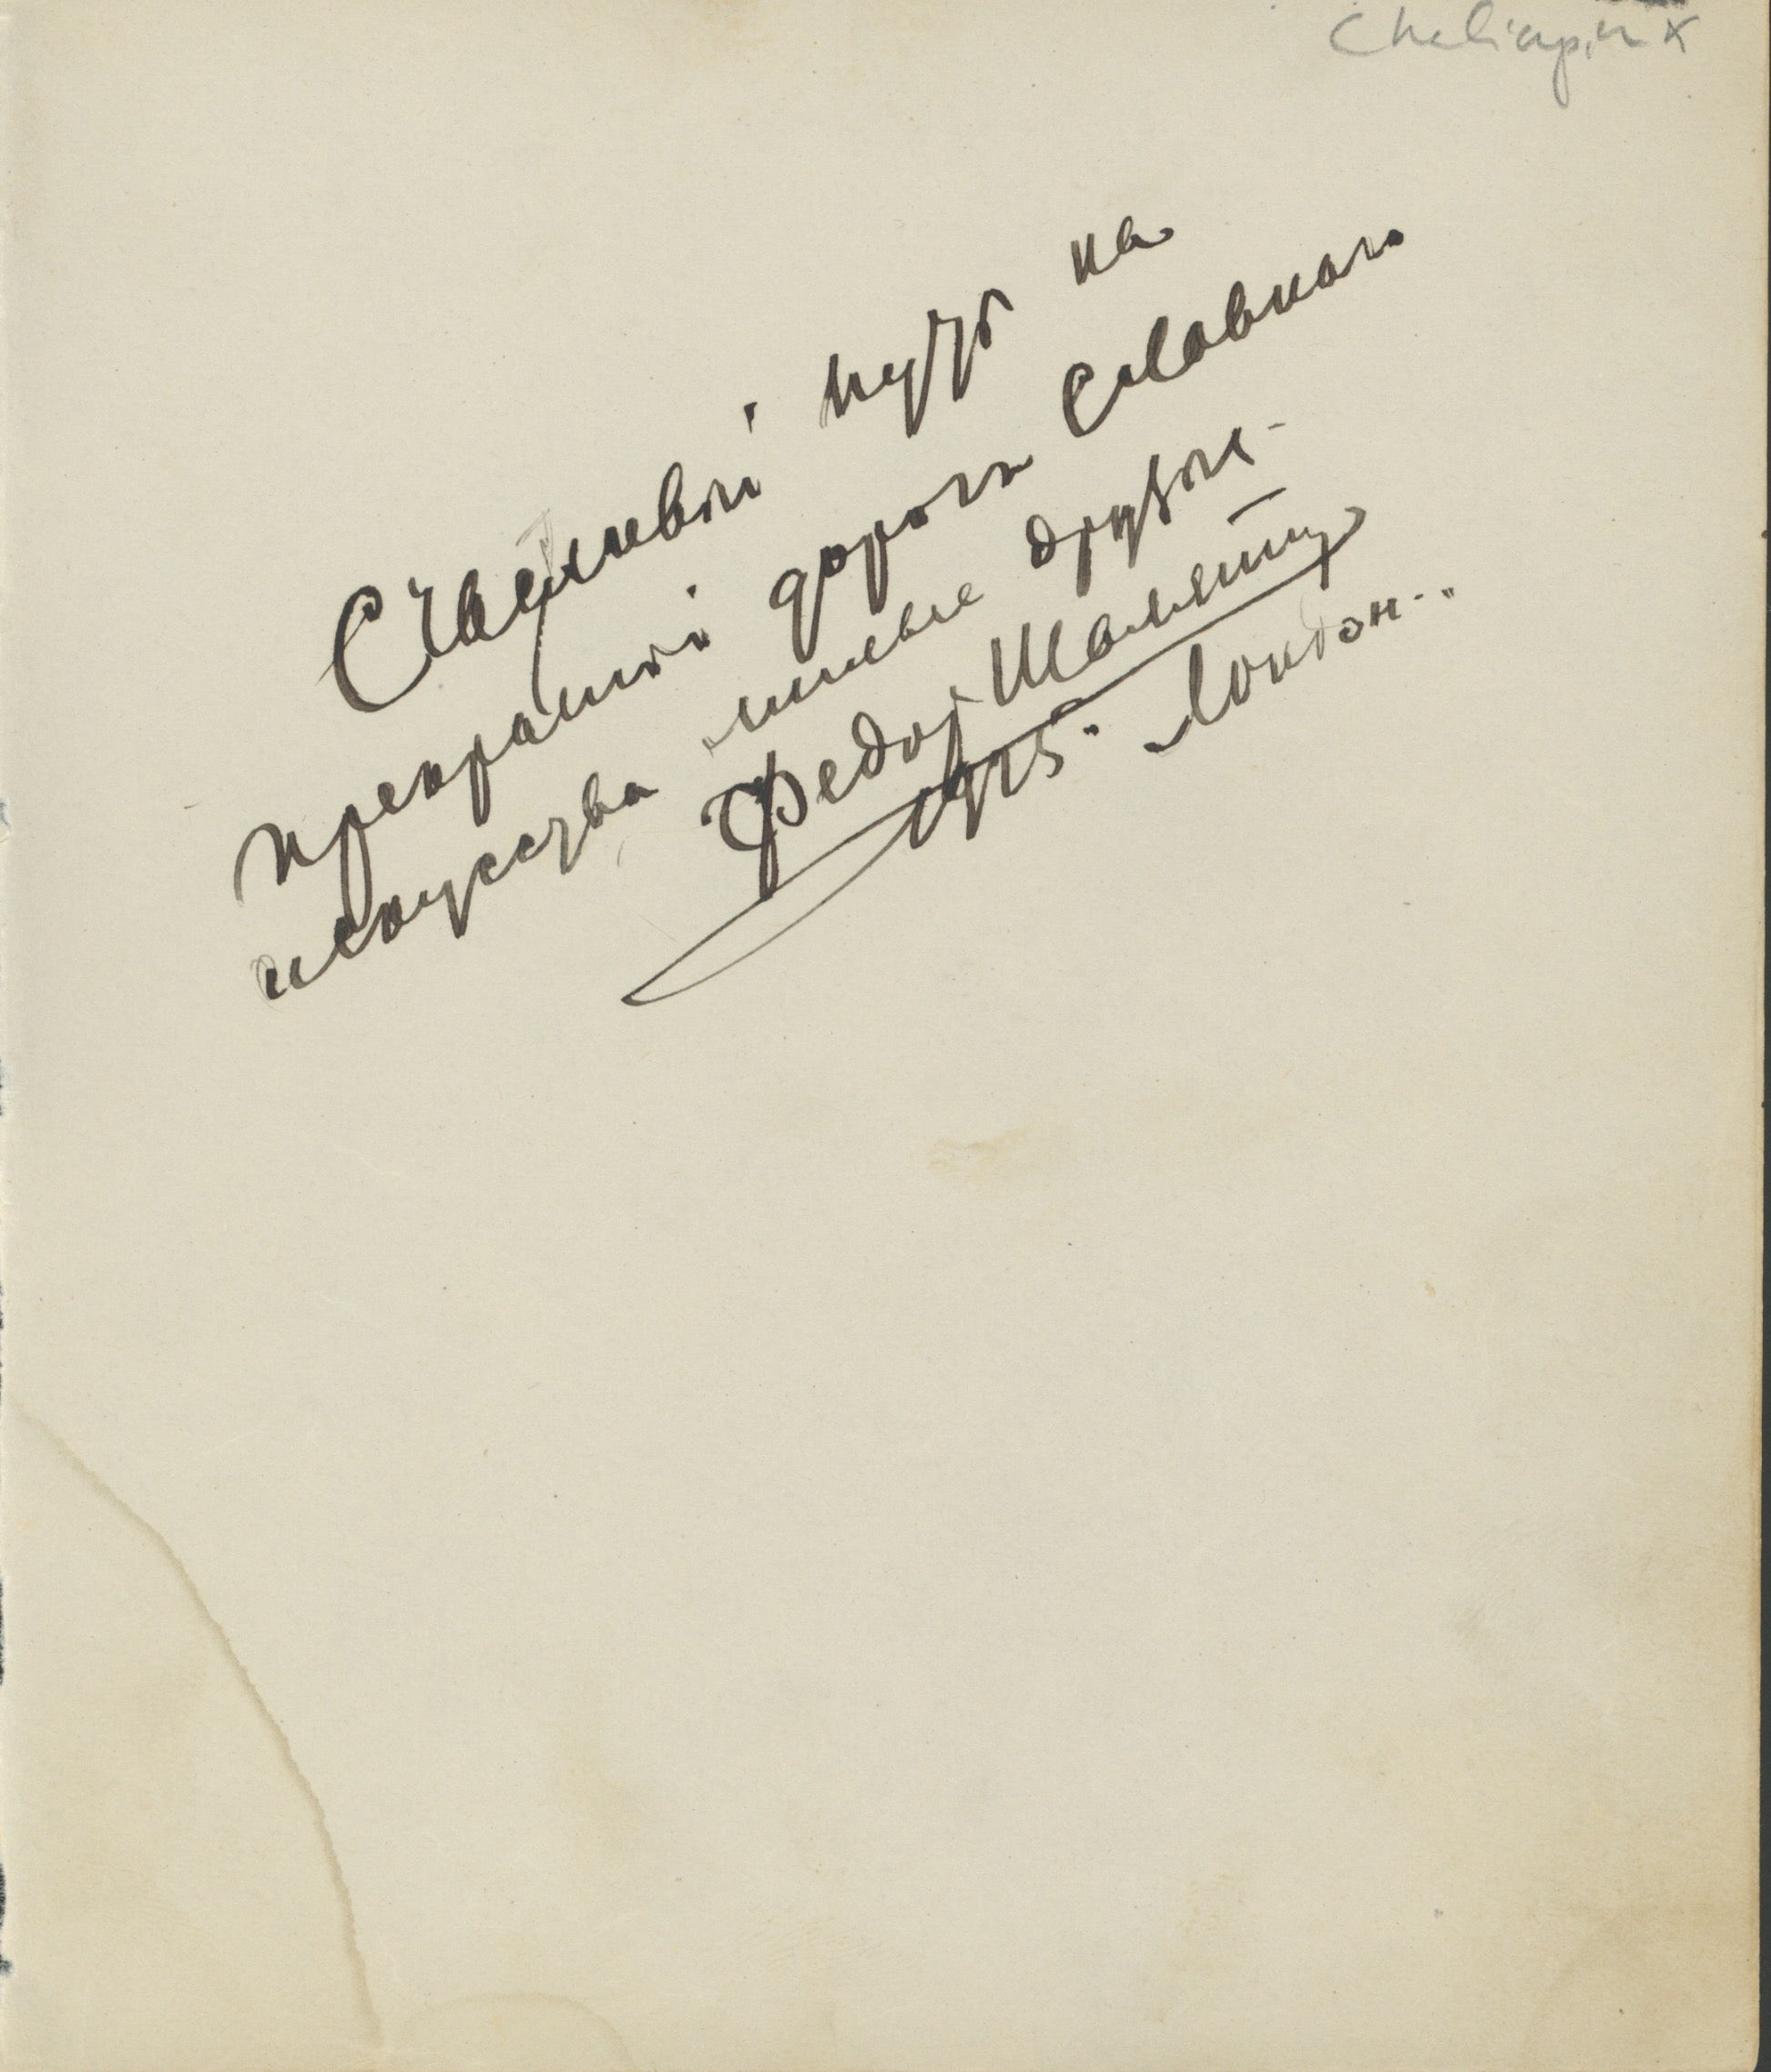 Chaliapin x
Счасливый путь на
прекрасной дороге славного
искусства милые друзья.
Федор Шаляпин
1925. Лондон..